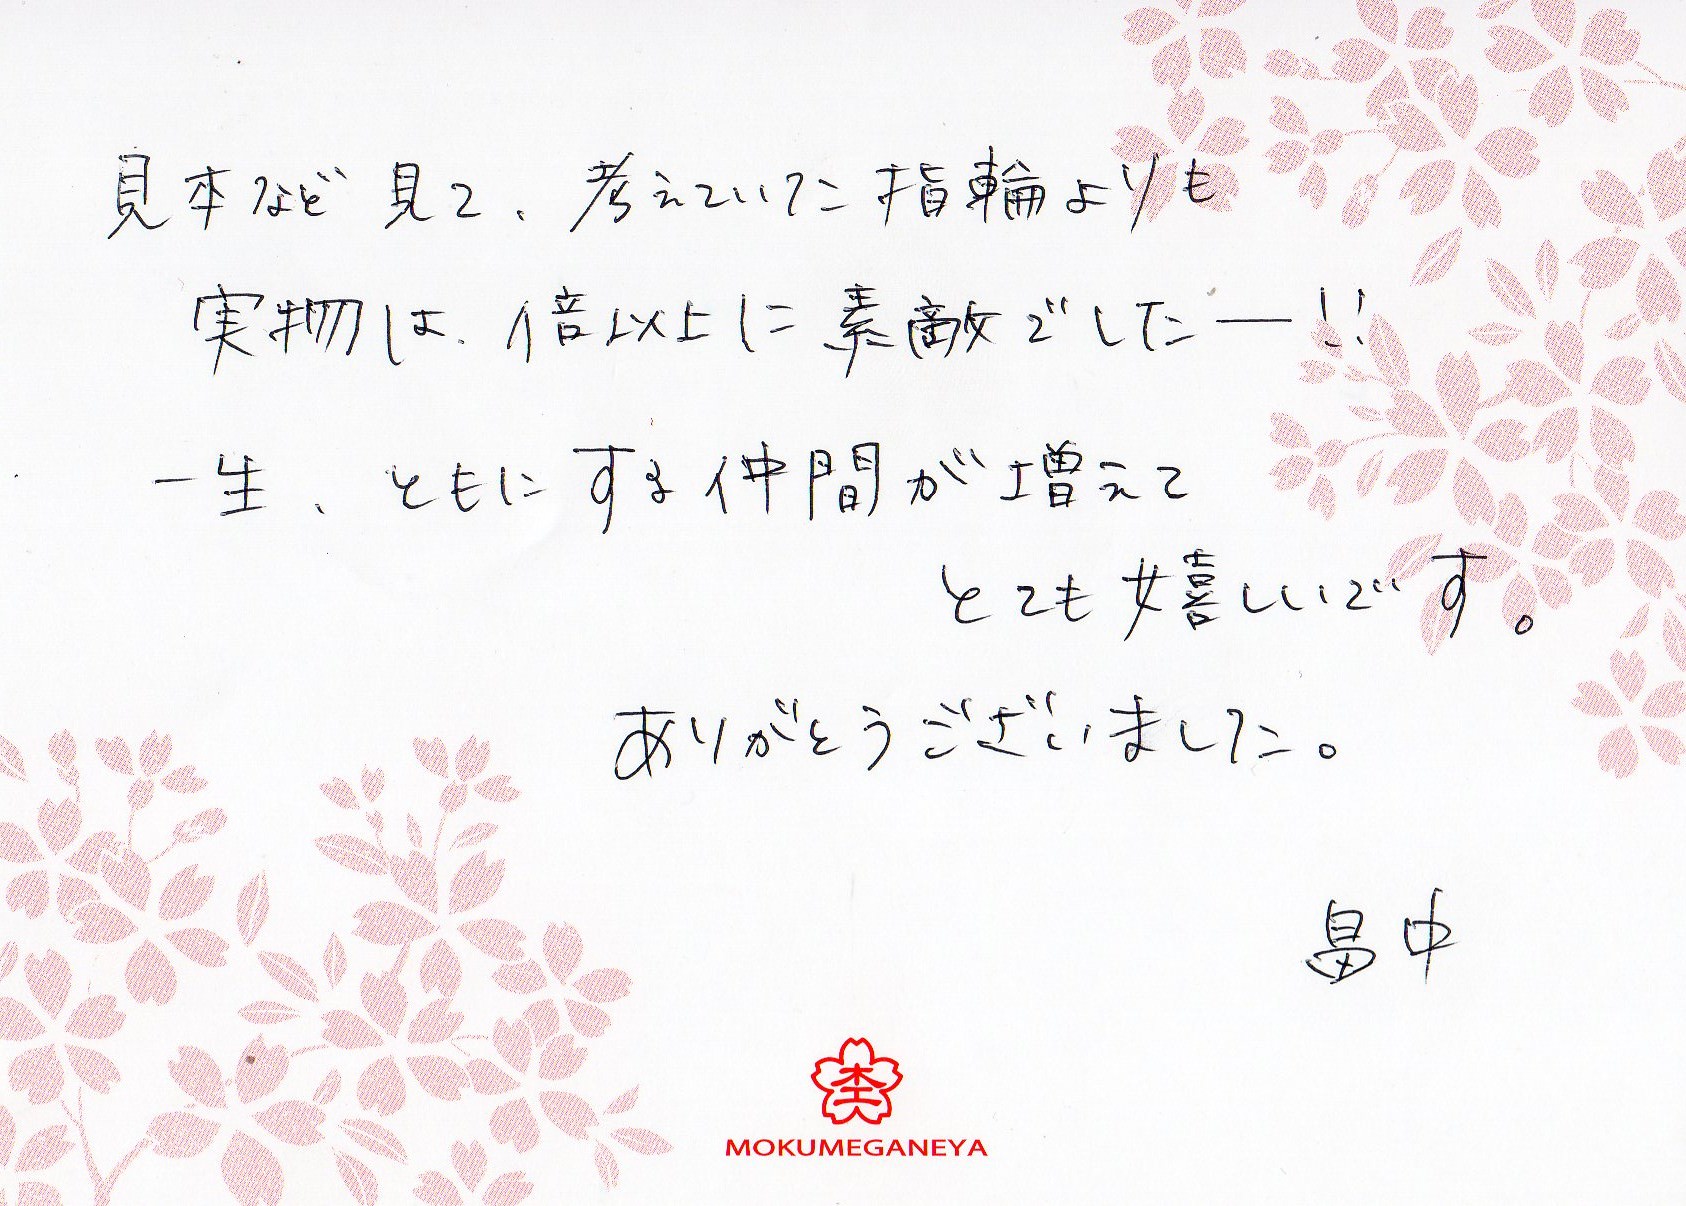 見本など見て、考えていた指輪よりも
実物は、倍以上に素敵でしたー!!
一生、ともにする仲間が増えて
とても嬉しいです。
ありがとうございました。
畠中
杢
MOKUMEGANEYA